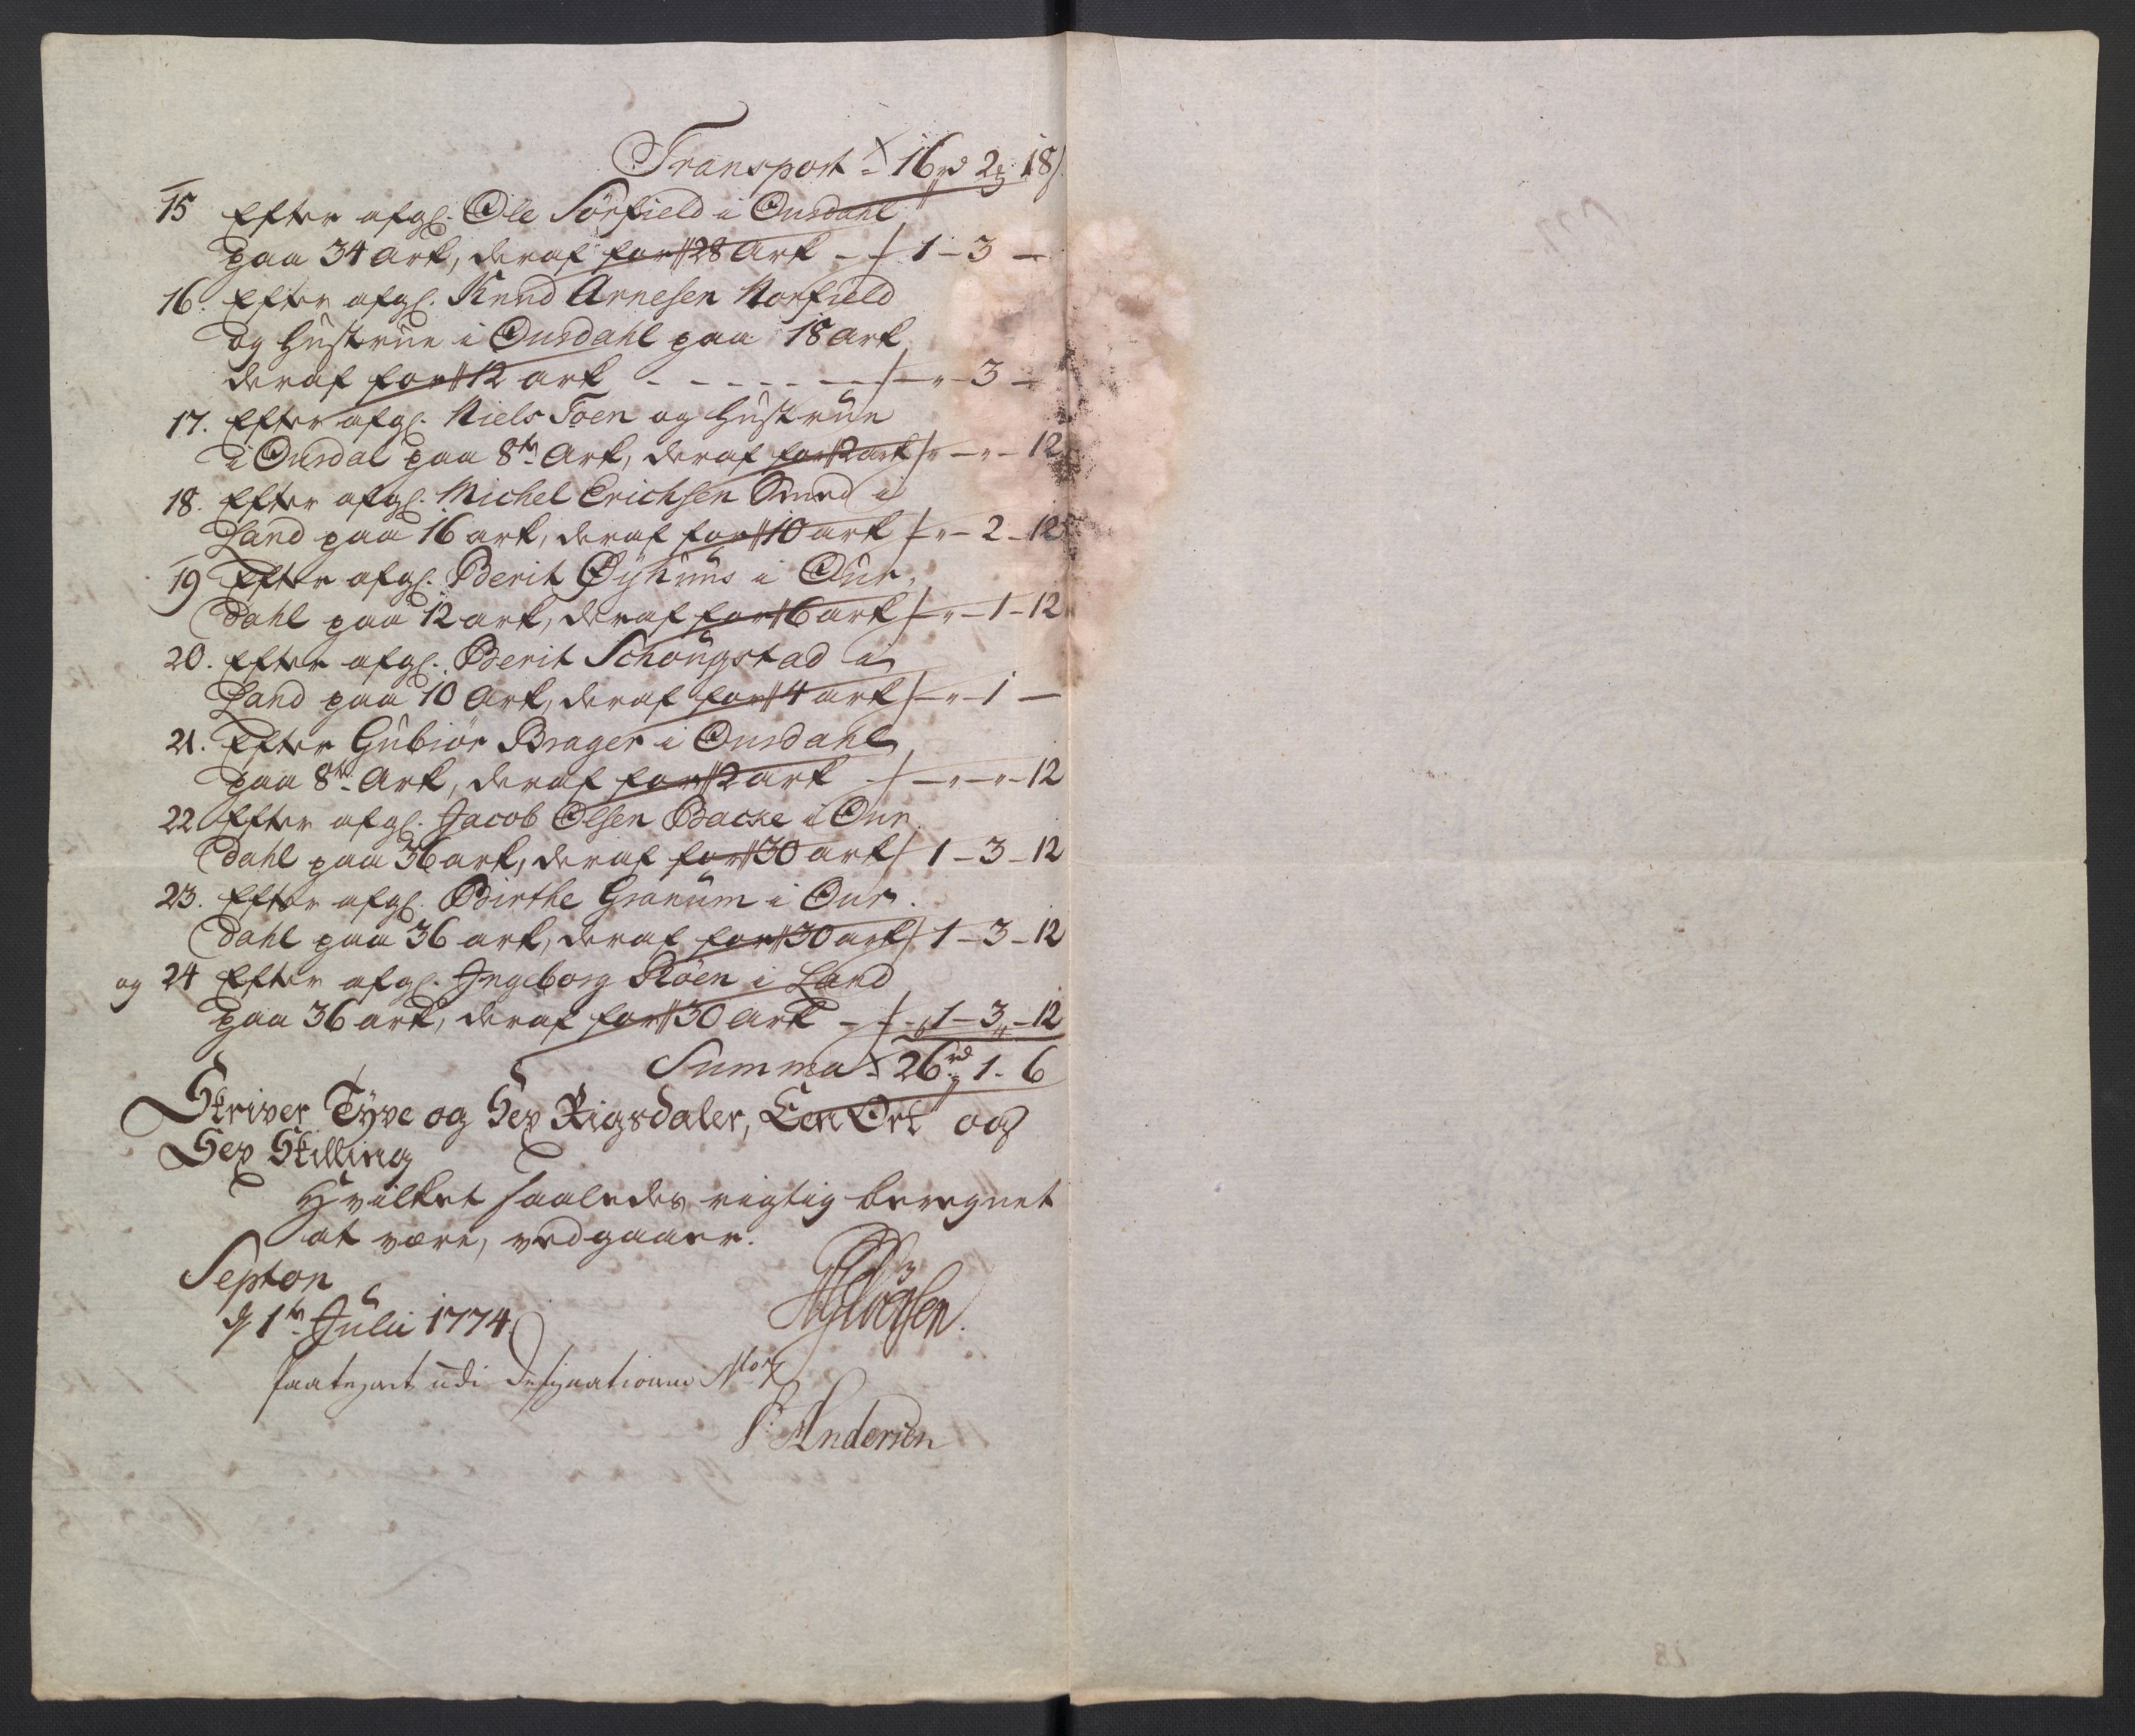 Transport - 16 rd 2 ₰ 18 s.
15 Efter afgl. Ole Sörfield i Ourdahl
paa 34 Ark, deraf for 28 Ark - 1 - 3 -
16. Efter afgl. Knud Arnesen Norfield
og Hustrue i Ourdahl paa 18 Ark
deraf for 12 ark - - - - - - " - 3 -
17. Efter afgl. Niels Toen og Hustrue
i Ourdal paa 8te Ark, deraf for 2 ark " - " - 12
18. Efter afgl. Michel Erichsen Smed i
Land paa 16 ark, deraf for 10 ark " - 2 - 12
19 Efter afgl. Berit Øÿhuus i Our-
dahl paa 12 ark, deraf for 6 ark - " - 1 - 12
20. Efter afgl. Berit Schougstad i
Land paa 10 Ark, deraf for 4 ark - " - 1 -
21. Efter Gubiör Brager i Ourdahl
paa 8te Ark, deraf for 2 ark - " - " - 12
22 Efter afgl. Jacob Olsen Backe i Our-
dahl paa 36 ark, deraf for 30 ark 1 - 3 - 12
23. Efter afgl. Birthe Granum i Our-
dahl paa 36 ark, deraf for 30 ark 1 - 3 - 12
og 24 Efter afgl. Ingeborg Röen i Land
paa 36 ark, deraf for 30 Ark - - 1 - 3 - 12
Summa 26 rd 1 - 6
Skriver Tÿve og Sex Rigsdaler, Een Ort og
Sex Skilling
Hvilket saaledes rigtig beregnet
at være, vedgaaer.
Septon
d 1te Julii 1774
saategnet udi Designationen No 7
Andersen